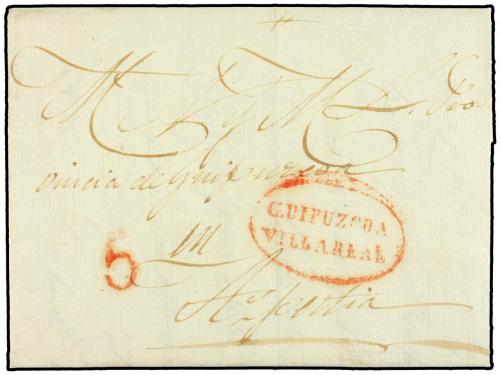 M. N. y M. L. Pro
vincia de Guipuzcoa
GUIPUZCOA
VILLAREAL
5
en
Azpeitia